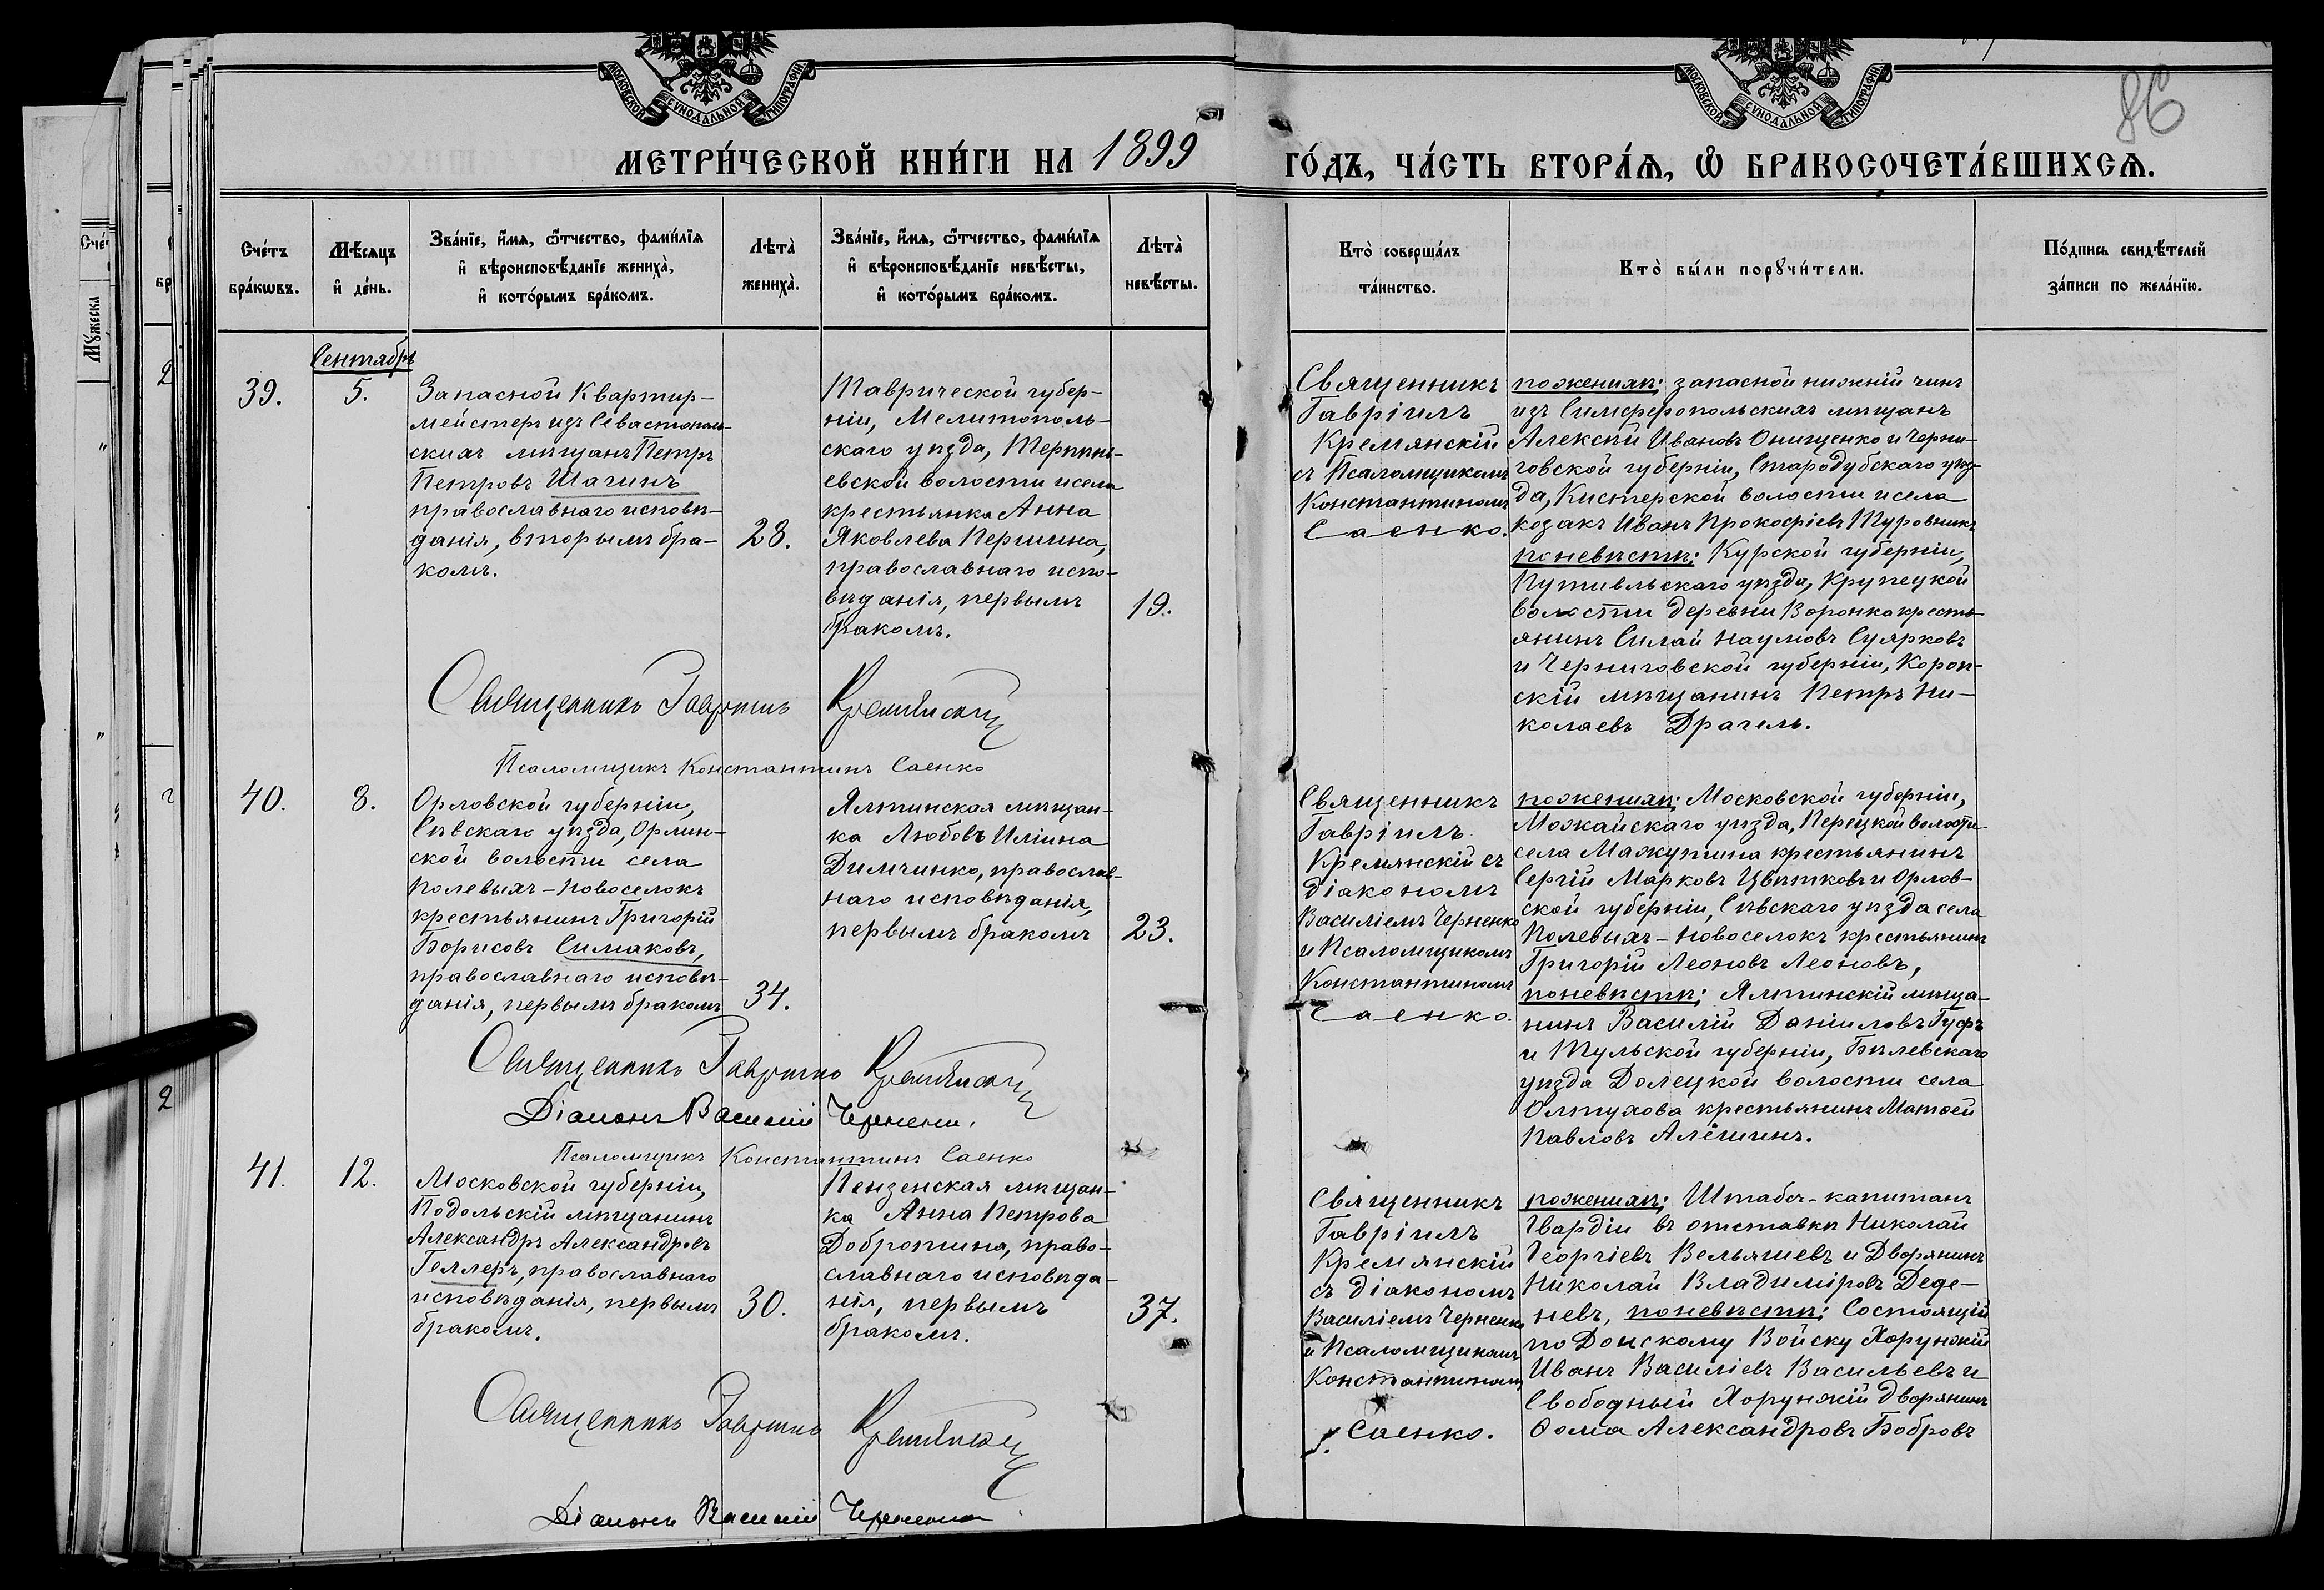 МОСКОВСКОЙ СУНОДАЛЬНОЙ ТИПОГРАФІИ.
МОСКОВСКОЙ СУНОДАЛЬНОЙ ТИПОГРАФІИ.
86
МЕТРИ́ЧЕСКОЙ КНИ́ГИ НА 1899
ГО́ДЪ, ЧА́СТЬ ВТОРА́Ѧ, Ѽ БРАКОСОЧЕТА́ВШИХСѦ.
Сче́тъ
бра́кѡвъ.
Мѣ́сяцъ
и҆ де́нь.
Зва́нїе, и҆́мя, ѻ҆́тчество, фами́лїя
и҆ вѣроисповѣ́данїе жениха̀,
и҆ кото́рымъ бра́комъ.
Лѣта̀
жениха̀.
Зва́нїе, и҆́мя, ѻ҆́тчество, фами́лїя
и҆ вѣроисповѣ́данїе невѣ́сты,
и҆ кото́рымъ бра́комъ.
Лѣта̀
невѣ́сты.
Кто̀ соверша́лъ
та́инство.
Кто̀ бы́ли порꙋчи́тели.
По́дпись свидѣ́телей
за́писи по жела́нїю.
Сентябрь
39.
5.
Запасной Квартир-
мейстеръ изъ Севастополь-
скихъ мѣщанъ Петръ
Петровъ Шагинъ
православнаго исповѣ-
данія, вторымъ бра-
комъ.
28.
Таврической губер-
ніи, Мелитополь-
скаго уѣзда, Терпинь-
евской волости и села
крестьянка Анна
Яковлева Першина,
православнаго испо-
вѣданія, первымъ
бракомъ.
19.
Священникъ
Гавріилъ
Кремянскій
съ Псаломщикомъ
Константиномъ
Саенко.
по женихѣ: запасной нижній чинъ
изъ Симферопольскихъ мѣщанъ
Алексѣй Ивановъ Онищенко и Черни-
говской губерніи, Стародубскаго уѣз-
да, Кистерской волости и села
козакъ Иванъ Прокофіевъ Туровникъ
по невѣстѣ: Курской губерніи,
Путивльскаго уѣзда, Крупецкой
волости деревни Воронка кресть-
янинъ Силай Наумовъ Сулрковъ
и Черниговской губерніи, Короп-
скій мѣщанинъ Петръ Ни-
колаевъ Драгель.
Священникъ Гавріилъ Кремянскій
Псаломщикъ Константинъ Саенко
40.
8.
Орловской губерніи,
Сѣвскаго уѣзда, Орлин-
ской волости села
Полевыхъ-Новоселокъ
крестьянинъ Григорій
Борисовъ Симаковъ,
православнаго исповѣ-
данія, первымъ бракомъ
34.
Ялтинская мѣщан-
ка Любовь Иліина
Димчинко, православ-
наго исповѣданія,
первымъ бракомъ
23.
Священникъ
Гавріилъ
Кремянскій съ
діакономъ
Василіемъ Черненко
и Псаломщикомъ
Константиномъ
Саенко.
по женихѣ: Московской губерніи,
Можайскаго уѣзда, Перецкой волости
села Мажутина крестьянинъ
Сергій Марковъ Цвѣтковъ и Орлов-
ской губерніи, Сѣвскаго уѣзда села
Полевыхъ-Новоселокъ крестьянинъ
Григорій Леоновъ Леоновъ,
по невѣстѣ: Ялтинскій мѣща-
нинъ Василій Даніиловъ Гуфъ
и Тульской губерніи, Бѣлевскаго
уѣзда Долецкой волости села
Олтухова крестьянинъ Матѳей
Павловъ Алёшинъ.
Священникъ Гавріилъ Кремянскій
Діаконъ Василій Черненко.
Псаломщикъ Константинъ Саенко
41.
12.
Московской губерніи,
Подольскій мѣщанинъ
Александръ Александровъ
Геллеръ, православнаго
исповѣданія, первымъ
бракомъ.
30.
Пензенская мѣщан-
ка Анна Петрова
Добротина, право-
славнаго исповѣда-
нія, первымъ
бракомъ.
37.
Священникъ
Гавріилъ
Кремянскій
съ діакономъ
Василіемъ Черненко
и Псаломщикомъ
Константиномъ
Саенко.
по женихѣ: Штабсъ-капитанъ
Гвардіи въ отставкѣ Николай
Георгіевъ Вельяшевъ и Дворянинъ
Николай Владиміровъ Деде-
невъ, по невѣстѣ: Состоящій
по Донскому Войску Хорунжій
Иванъ Василіевъ Васильевъ и
Свободный Хорунжій дворянинъ
Ѳома Александровъ Бобровъ
Священникъ Гавріилъ Кремянскій
Діаконъ Василій Черненко